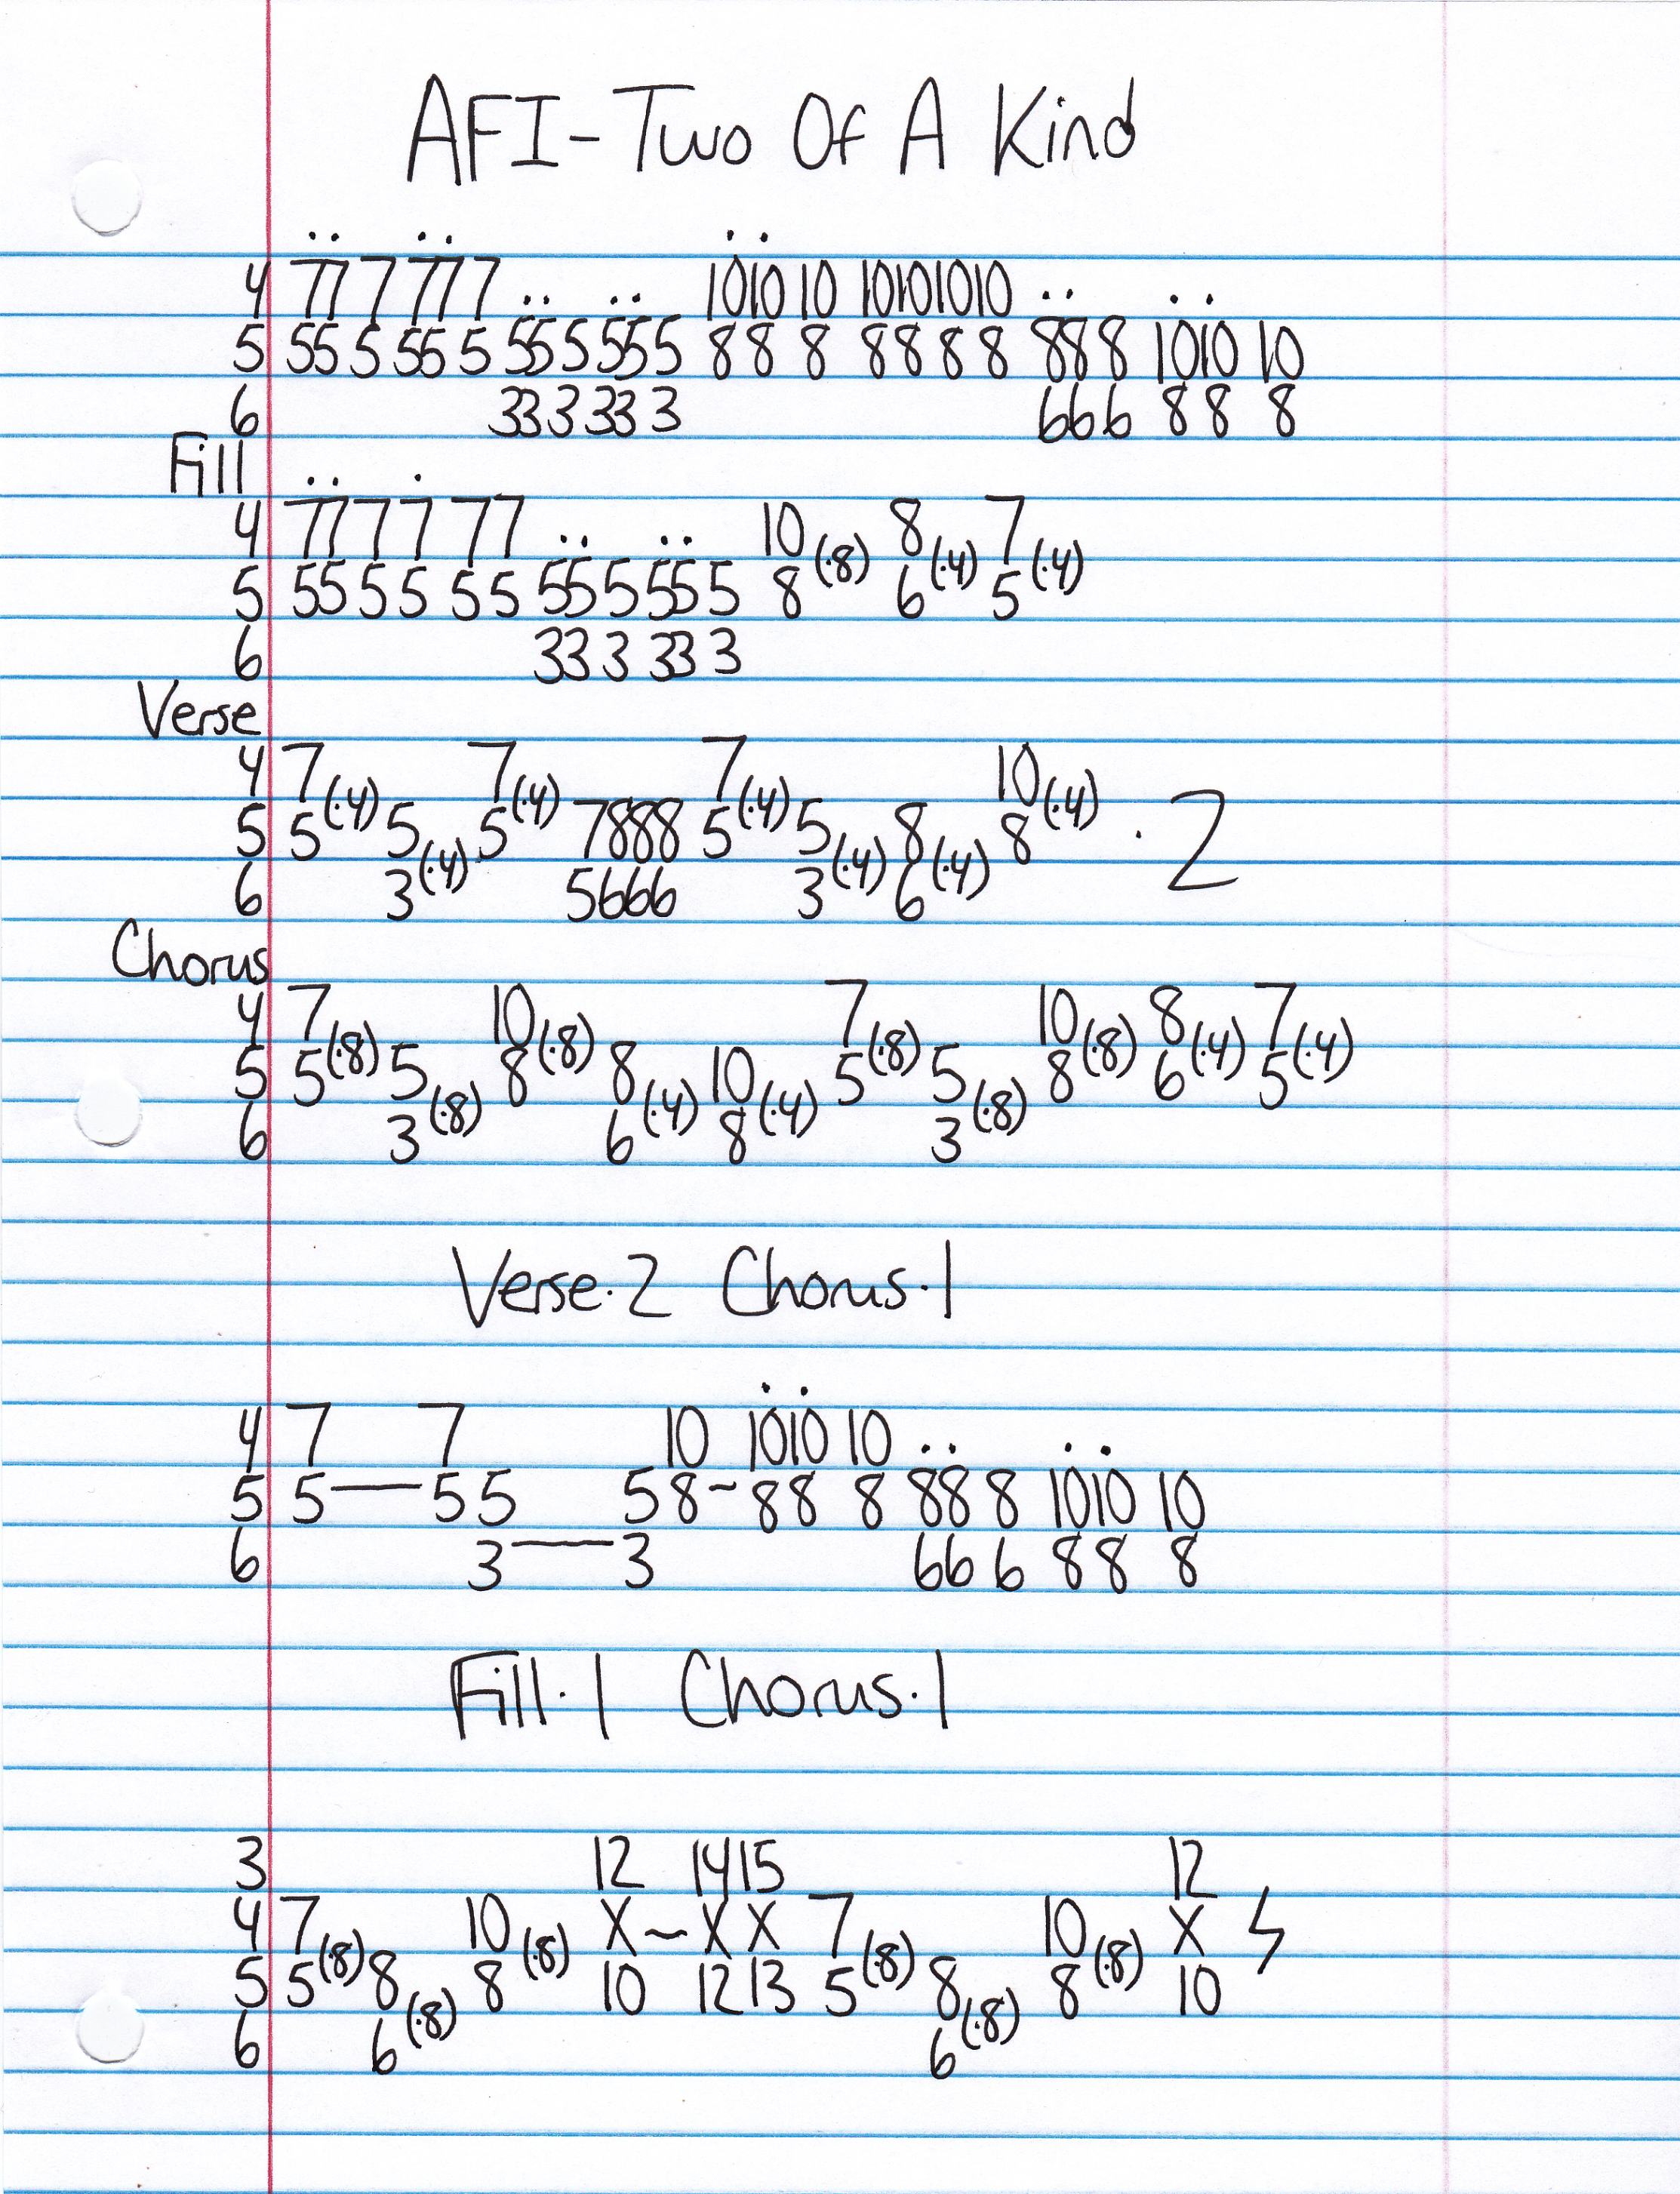 AFI-Two Of A Kind
4 77 7 77 7 1010 10 10101010
5 55 5 55 5 55 5 55 5 88 8 88 8 8 88 8 1010 10
6 33 3 33 3 66 6 88 8
Fill
4 77 7 7 7 7 10(·8) 8(·4) 7(·4)
5 55 5 5 5 5 55 5 55 5 8 6 5
6 33 3 33 3
Verse
4 7(·4) 7(·4) 7(·4) 10(·4)
5 5 5(·4) 5 7888 5 5(·4) 8(·4) 8 · 2
6 3 5666 3 6
Chorus
4 7(·8) 10(·8) 7(·8) 10(·8) 8(·4) 7(·4)
5 5 5(·8) 8 8(·4) 10(·4) 5 5(·8) 8 6 5
6 3 6 8 3
Verse·2 Chorus·1
4 7 7 10 1010 10
5 5—5 5 5 8~88 8 88 8 1010 10
6 3—3 66 6 88 8
Fill·1 Chorus·1
3 12 14 15 12
4 7(·8) 10(·8) X~X X 7(·8) 10(·8) X
5 5 8(·8) 8 10 12 13 5 8(·8) 8 10
6 6 6